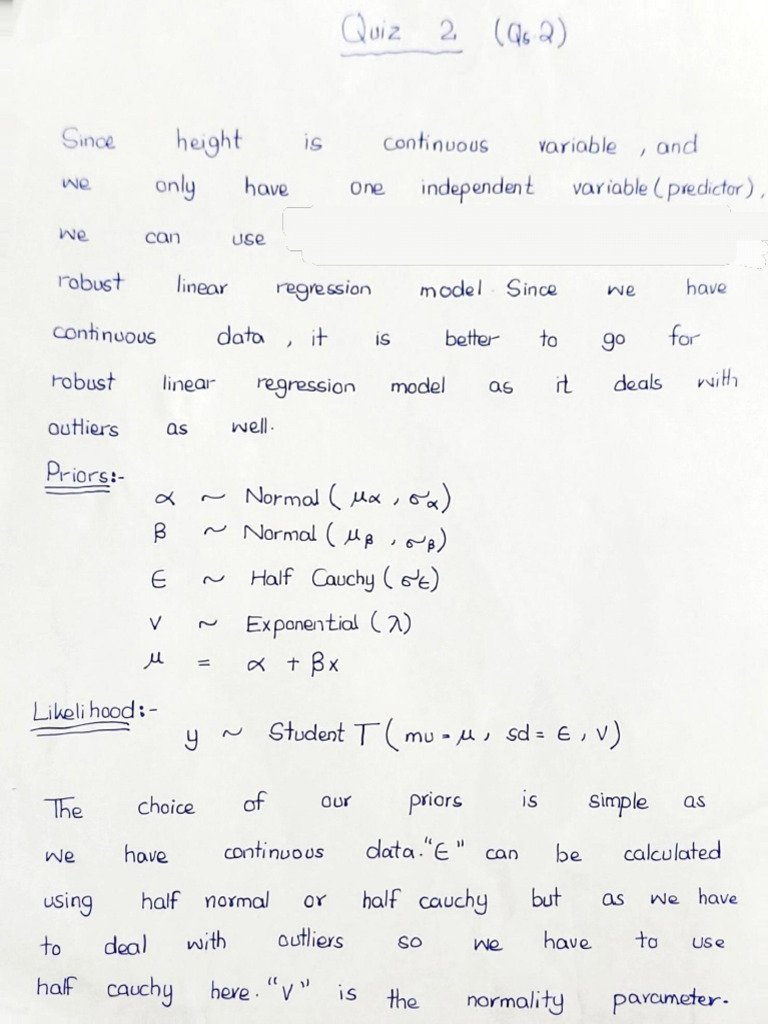 Quiz 2 (Qs.2)
Since height is continuous variable, and
we only have one independent variable (predictor),
we can use
robust linear regression model. Since we have
continuous data, it is better to go for
robust linear regression model as it deals with
outliers as well.
Priors:-
α ~ Normal (μα, σα)
β ~ Normal (μβ, σβ)
ϵ ~ Half Cauchy (σϵ)
ν ~ Exponential (λ)
μ = α + βx
Likelihood:-
y ~ Student T (mu = μ, sd = ϵ, ν)
The choice of our priors is simple as
we have continuous data. "ϵ" can be calculated
using half normal or half cauchy but as we have
to deal with outliers so we have to use
half cauchy here. "ν" is the normality parameter.